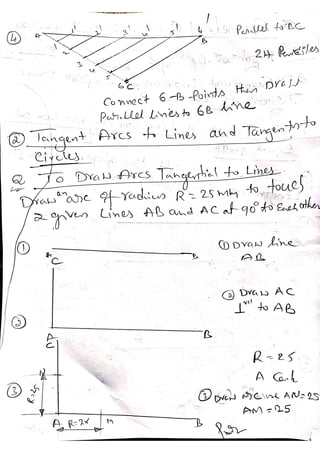 ④ A 1' 2' 3' 4' 5' 6' B Parallel to BC
1 2 3 4 5 6 C
2H Pencils
Connect 6-B-Points then Draw
Parallel lines to 6B line
② Tangent Arcs to Lines and Tangents to
Circles.
Q To Draw Arcs Tangential to Lines
Draw an arc of radius R = 25mm to touch
2 given Lines AB and AC at 90° to Each other
① A B ① Draw line
AB
C
② Draw AC
⊥ to AB
② A B
C
R = 25
A Cent
③ R=25 ① Draw arc AN=25
AM = 25
A R=25 M B